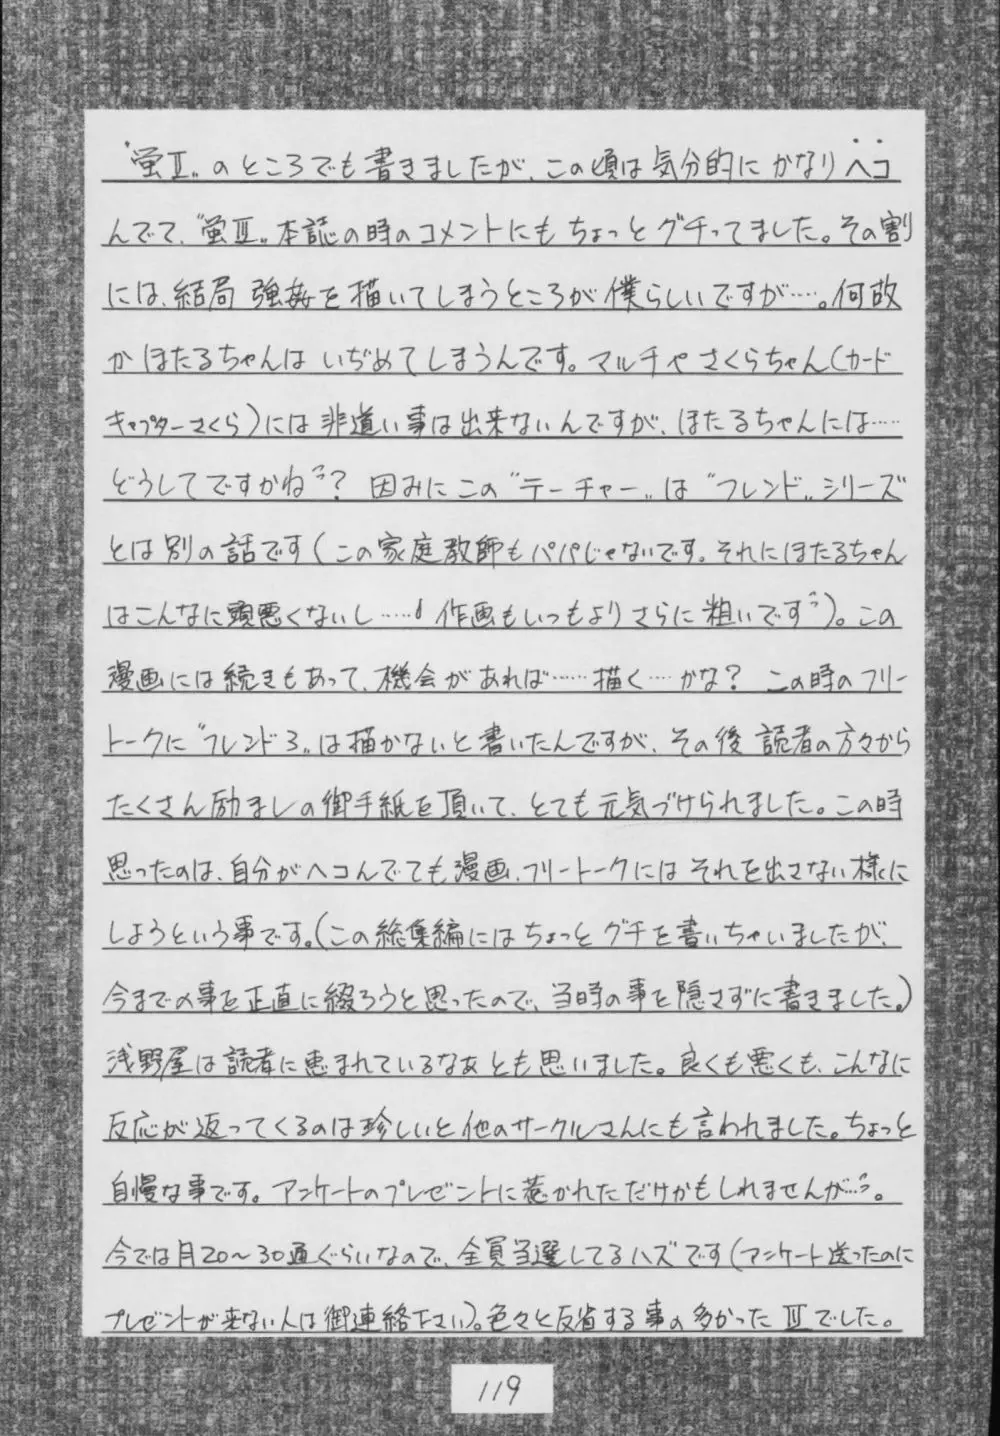 “蛍Ⅱ„のところでも書きましたが、この頃は気分的にかなりヘコ
んでて、“蛍Ⅲ„本誌の時のコメントにもちょっとグチってました。その割
には、結局 強姦を描いてしまうところが僕らしいですが‥‥。何故
かほたるちゃんは いぢめてしまうんです。マルチや さくらちゃん(カード
キャプターさくら)には非道い事は出来ないんですが、ほたるちゃんには‥‥
どうしてですかね? 因みにこの“テーチャー„は“フレンド„シリーズ
とは別の話です(この家庭教師もパパじゃないです。それにほたるちゃん
はこんなに頭悪くないし‥‥! 作画もいつもよりさらに粗いです)。この
漫画には続きもあって、機会があれば‥‥描く‥‥かな? この時のフリー
トークに“フレンド3„は描かないと書いたんですが、その後 読者の方々から
たくさん励ましの御手紙を頂いて、とても元気づけられました。この時
思ったのは、自分がヘコんでても漫画、フリートークにはそれを出さない様に
しようという事です。(この総集編にはちょっとグチを書いちゃいましたが、
今までの事を正直に綴ろうと思ったので、当時の事を隠さずに書きました。)
浅野屋は読者に恵まれているなぁとも思いました。良くも悪くも、こんなに
反応が返ってくるのは珍しいと他のサークルさんにも言われました。ちょっと
自慢な事です。アンケートのプレゼントに惹かれただけかもしれませんが‥。
今では月20～30通ぐらいなので、全員当選してるハズです(アンケート送ったのに
プレゼントが来ない人は御連絡下さい)。色々と反省する事の多かった Ⅲでした。
119